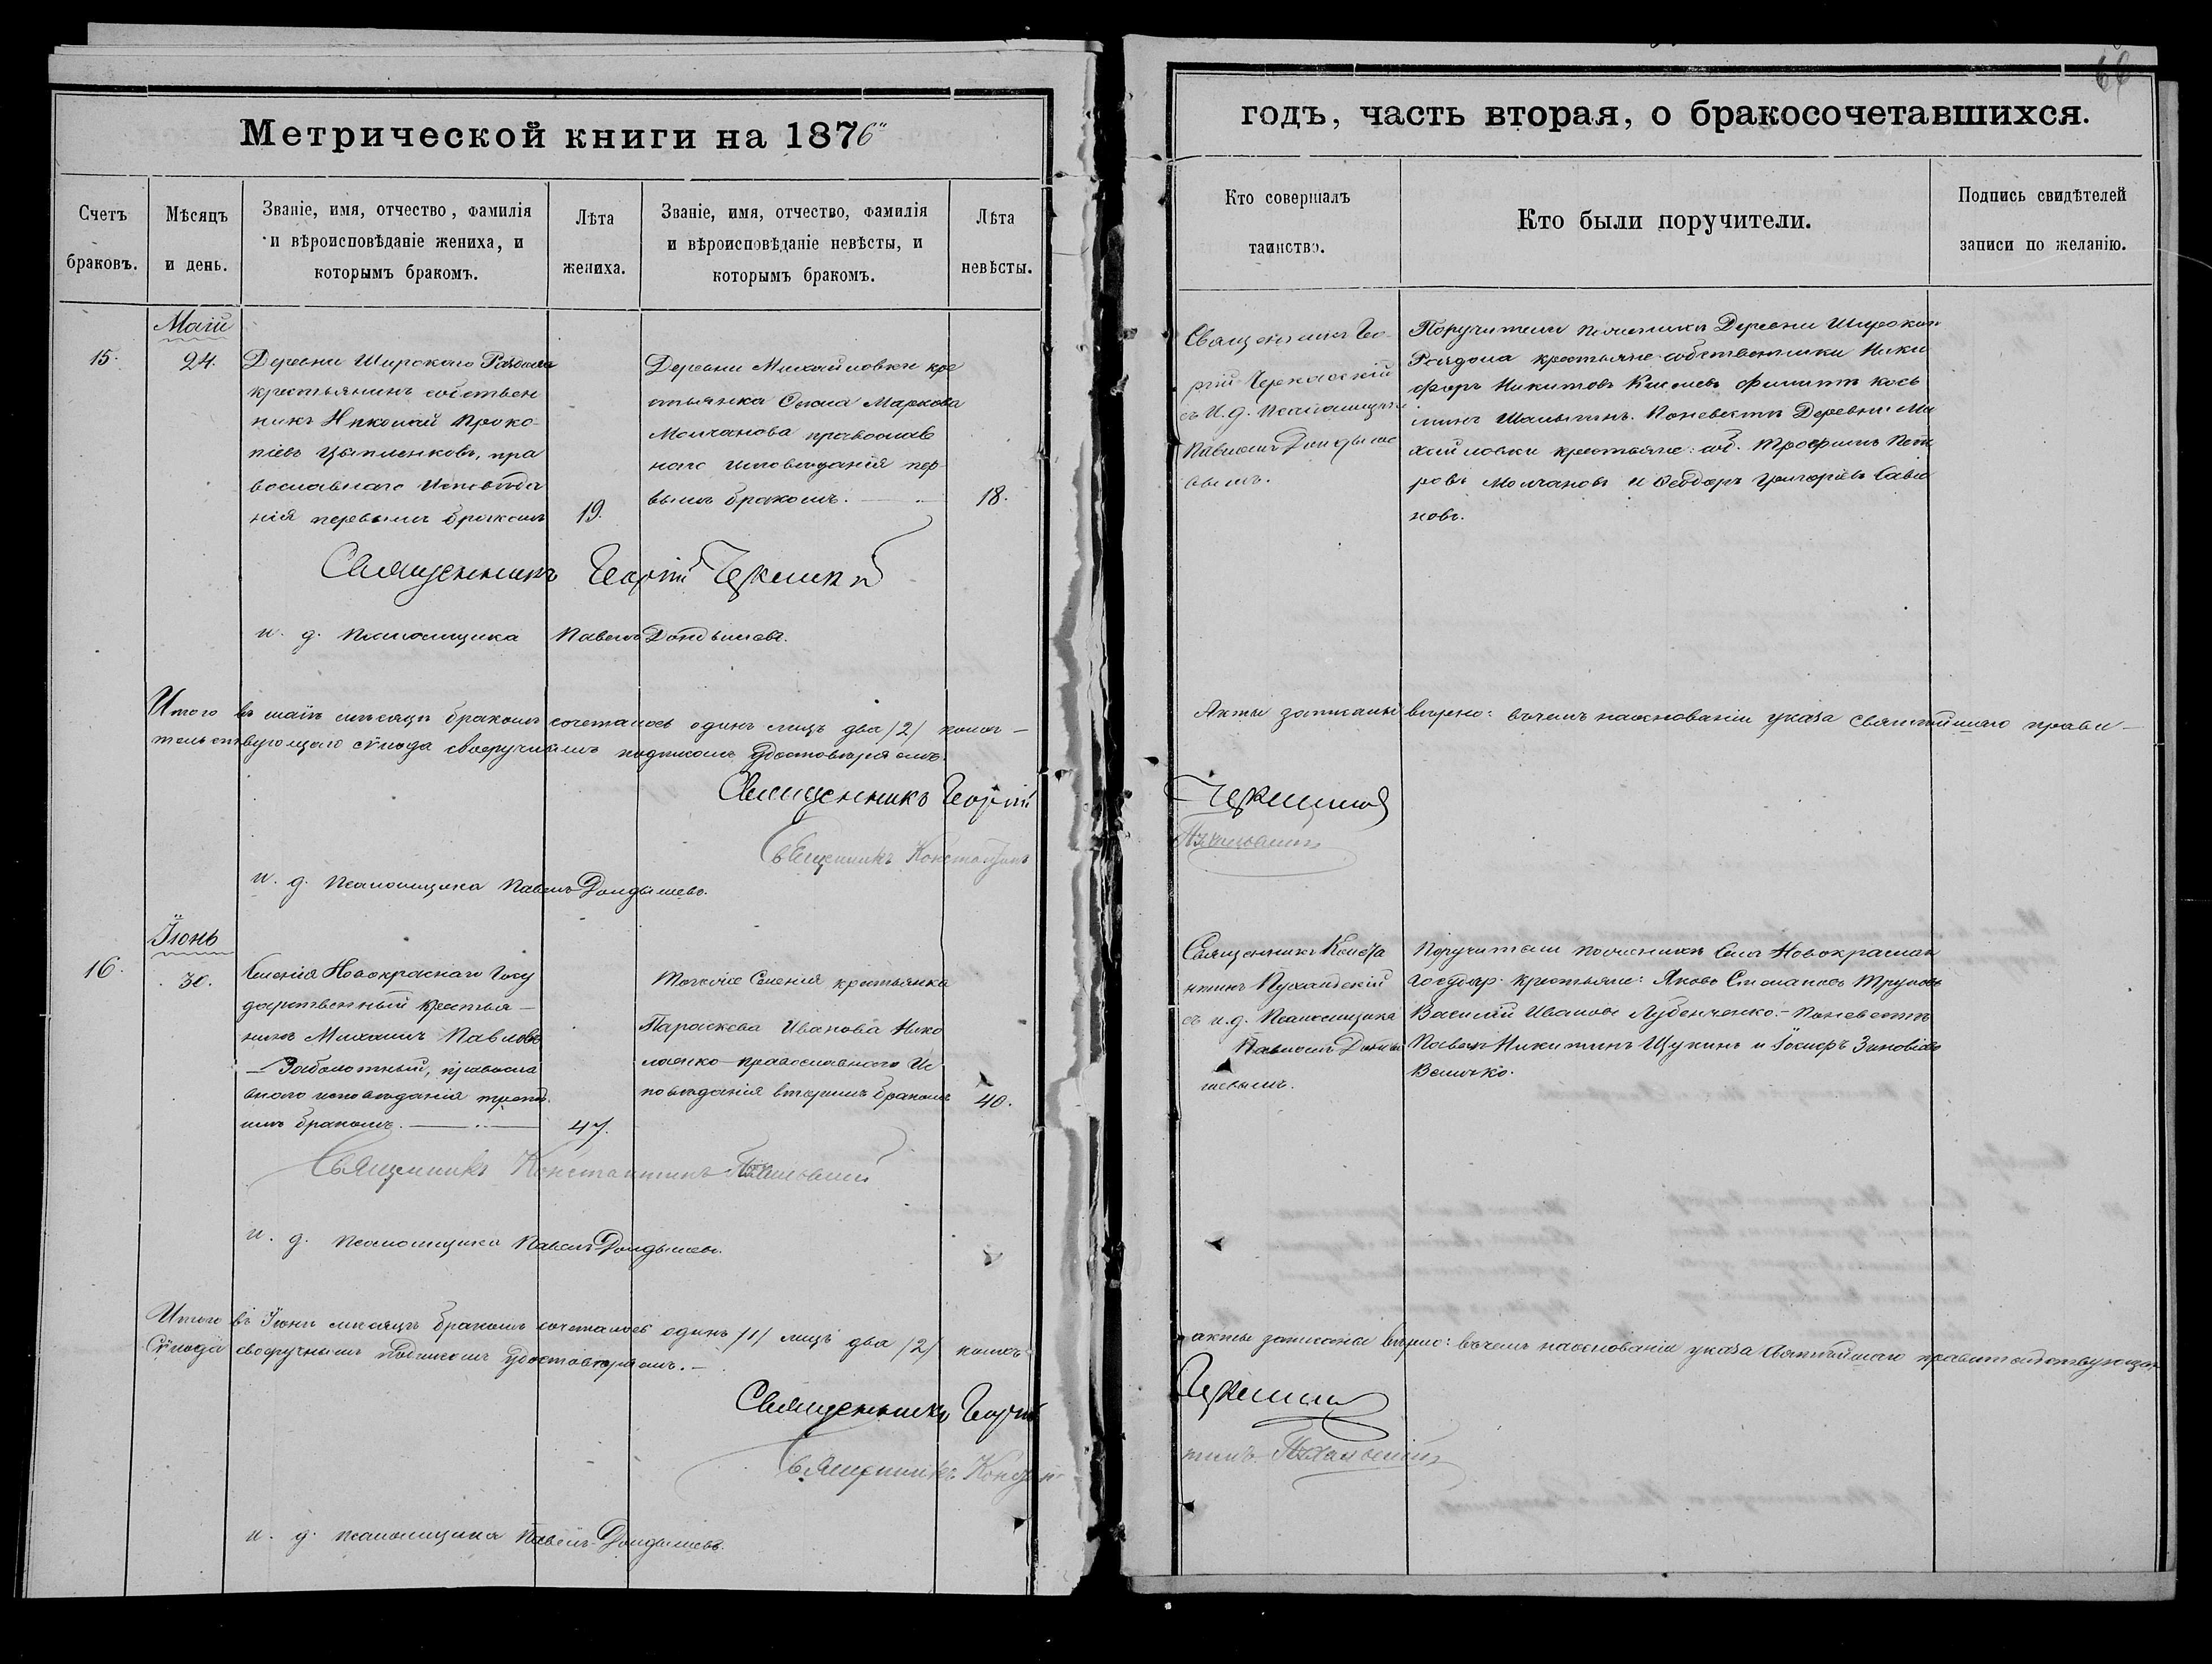 66
Метрической книги на 1876
годъ, часть вторая, о бракосочетавшихся.
Счетъ браковъ.
Мѣсяцъ и день.
Званіе, имя, отчество, фамилія
и вѣроисповѣданіе жениха, и
которымъ бракомъ.
Лѣта
жениха.
Званіе, имя, отчество, фамилія
и вѣроисповѣданіе невѣсты, и
которымъ бракомъ.
Лѣта
невѣсты.
Кто совершалъ
таинство.
Кто были поручители.
Подпись свидѣтелей
записи по желанію.
Маій
15.
24.
Деревни Широкаго Раздола
крестьянинъ собствен
никъ Николай Проко-
піевъ Цыпленковъ, пра
вославнаго исповѣда
нія первымъ бракомъ
19.
Деревни Михайловки кре
стьянка Маркова
Молчанова православ
наго исповѣданія пер-
вымъ бракомъ.
18.
Священникъ Гео-
ргій Черкасскій
съ И. д. Псаломщика
Павломъ
Поручители по женихѣ Деревни Широкаго
Раздола крестьяне собственники Ники
форъ Никитовъ Киселевъ Филиппъ Козь
минъ Шалыгинъ. По невѣстѣ Деревни Ми
хайловки крестьяне: соб. Трофимъ Пет
ровъ Молчановъ и Ѳеодоръ Григорьевъ Савe
новъ.
Священникъ Георгій
и. д. Псаломщика Павелъ
Итого въ маіѣ мѣсяцѣ бракомъ сочеталось одинъ лицъ два /2/
Акты записаны вѣрно: въ чемъ на основаніи указа Святѣйшаго прави-
тельствующаго сѵнода своеручнымъ подписомъ удостовѣряемъ.
Священникъ Георгій
Священникъ Константинъ
и. д. псаломщика Павелъ
Іюнь
16.
30.
Селенія Новокраснаго Госу
дарственный крестья-
нинъ Михаилъ Павловъ
Заболотный, правосла
внаго исповѣданія треть
имъ бракомъ.
47.
Тогоже Селенія крестьянка
Параскева Иванова Нико
лаенко православнаго Ис
повѣданія вторымъ бракомъ
40.
Священникъ Конста
нтинъ Пухальскій
съ и.д. Псаломщика
Павломъ
Поручители по женихѣ Села Новокраснаго
Государ. крестьяне: Яковъ Степановъ
Василій Ивановъ Лубенченко. - По невѣстѣ
Павелъ Никитинъ Щукинъ и Іосифъ Зиновіевъ
Величко.
Священникъ Константинъ
и. д. псаломщика Павелъ
Итого въ Іюнѣ мѣсяцѣ бракомъ сочеталось одинъ /1/ лицъ два /2/
акты записаны вѣрно: въ чемъ на основаніи указа Святѣйшаго правительствующаго
Сѵнода своеручнымъ подписомъ удостовѣряемъ. -
Священникъ Георгій
Священникъ Констан
тинъ
и. д. псаломщика Павелъ